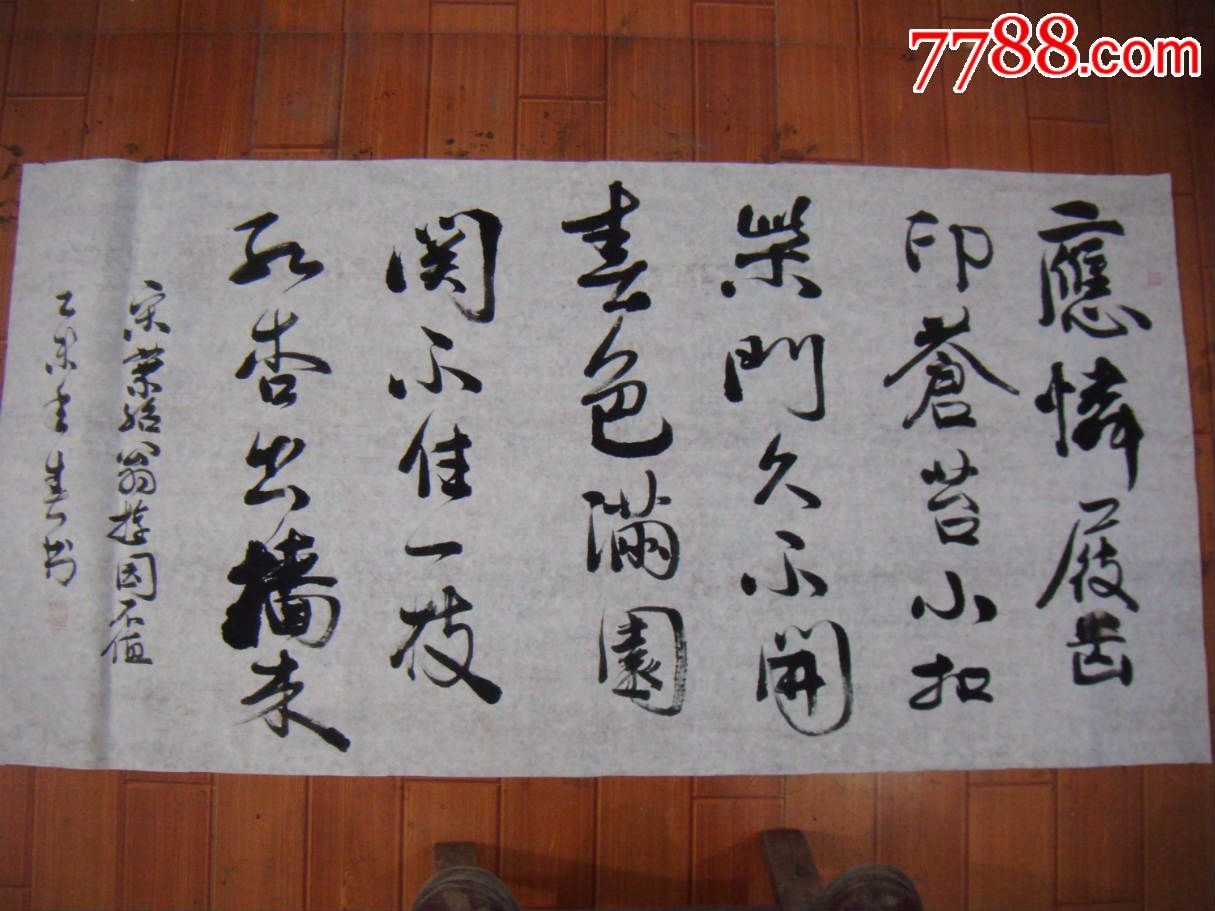 7788.com
應憐屐齒
印蒼苔小扣
柴門久不開
春色滿園
関不住一枝
紅杏出墻來
宋葉紹翁遊園不值
乙未春书